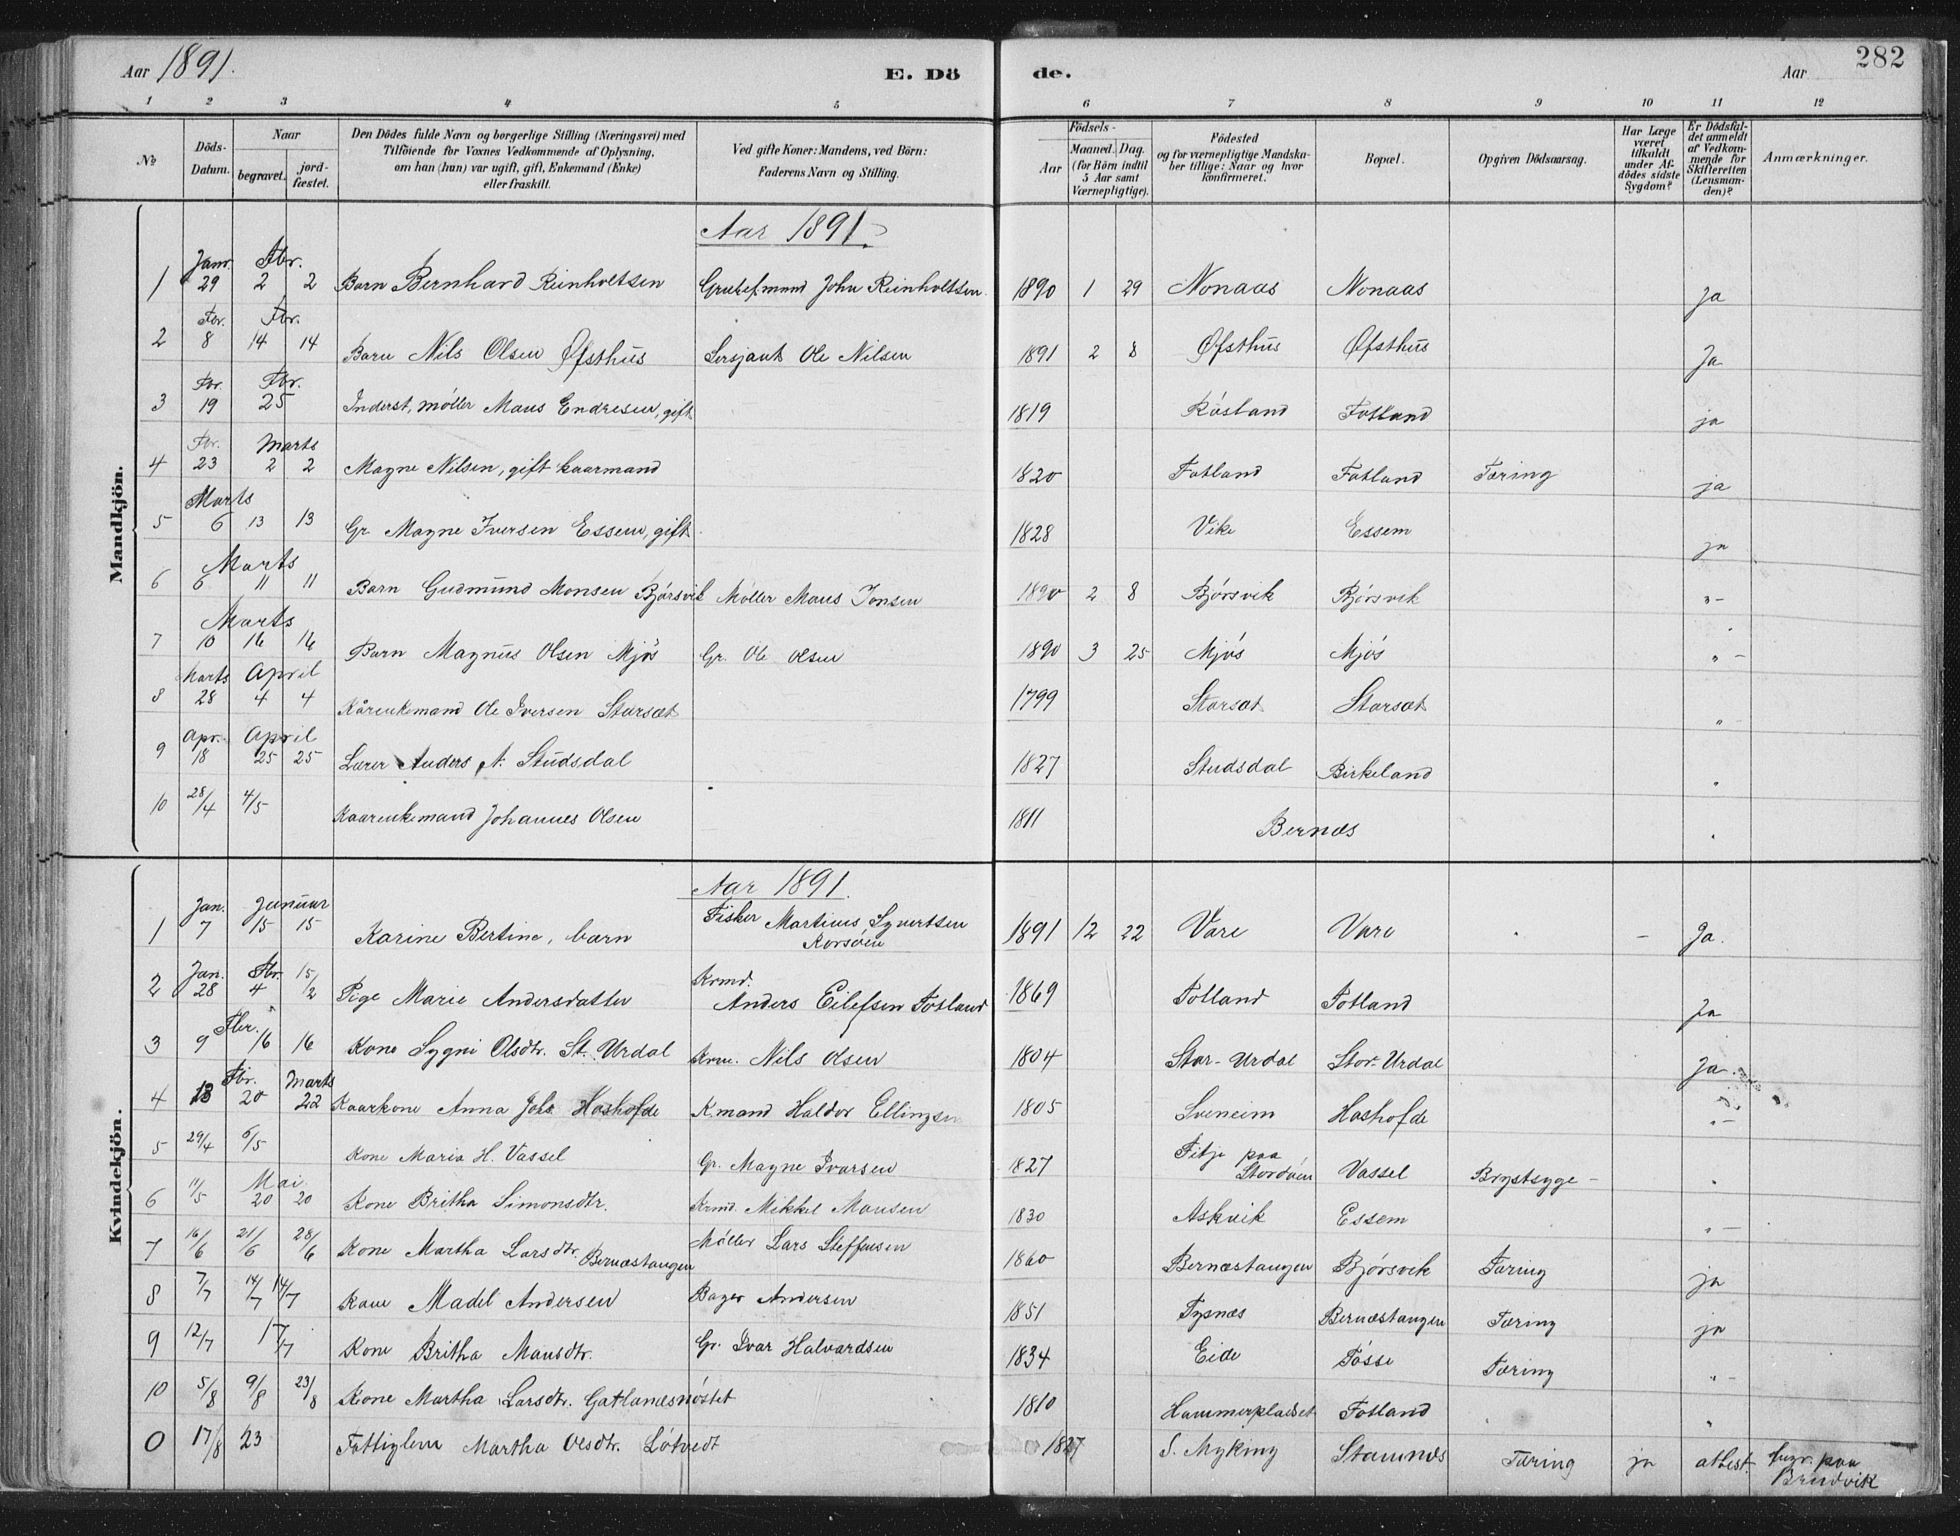 Aar 1891.
E. Dö
de.
Aar
282
1 2 3 4 5 6 7 8 9 10 11 12
No
Döds-Datum.
Naar
begravet.
jord-fæstet.
Den Dödes fulde Navn og borgerlige Stilling (Næringsvei) med
Tilföiende for Voxnes Vedkommende af Oplysning,
om han (hun) var ugift, gift, Enkemand (Enke)
eller fraskilt.
Ved gifte Koner: Mandens, ved Börn:
Faderens Navn og Stilling.
Födsels-
Aar
Maaned. Dag.
(for Börn indtil
5 Aar samt
Værnepligtige).
Födested
og for værnepligtige Mandska-
ber tillige: Naar og hvor
konfirmeret.
Bopæl.
Opgiven Dödsaarsag.
Har Læge
været
tilkaldt
under Af-
dödes sidste
Sygdom?
Er Dödsfal-
det anmeldt
af Vedkom-
mende for
Skifteretten
(Lensman-
den)?
Anmærkninger.
Mandkjön.
Aar 1891
1 Janr. 29 Fbr. 2 2 Barn Bernhard Reinholtsen John Reinholtsen 1890 1 29 Nonaas Nonaas ja
2 Fbr. 8 Fbr. 14 14 Barn Nils Olsen Øfsthus Sersjant Ole Nilsen 1891 2 8 Øfsthus Øfsthus Ja
3 Fbr. 19 Fbr. 25 Inderst, møller Mons Endresen, gift 1819 Røsland Fotland ja
4 Fbr. 23 Marts 2 2 Magne Nilsen, gift kaarmand 1820 Fotland Fotland Tæring ja
5 Marts 6 13 13 Gr. Magne Iversen Essem, gift 1828 Vike Essem ja
6 Marts 6 11 11 Barn Gudmund Monsen Bjørsvik Møller Mons Jonsen 1890 2 8 Bjørsvik Bjørsvik "-
7 Marts 10 16 16 Barn Magnus Olsen Mjøs Gr. Ole Olsen 1890 3 25 Mjøs Mjøs "-
8 Marts 28 April 4 4 Kårenkemand Ole Iversen Storsæt 1799 Storsæt Storsæt "-
9 Apr. 18 April 25 25 Lærer Anders A. Studsdal 1827 Studsdal Birkeland "
10 28/4 4/5 Kaarenkemand Johannes Olsen 1811 Bernæs "
Kvindekjön.
Aar 1891.
1 Jan. 7 Januar 15 15 Karine Bertine, barn Fisker Martinus Syvertsen 1891 12 22 Vare Vare - Ja.
2 Jan. 28 Fbr. 4 15/2 Pige Marie Andersdatter Krmd. Anders Eilefsen Fotland 1869 Fotland Fotland Ja
3 Fbr. 9 16 16 Kone Sygni Olsdtr. St. Urdal Krm. Nils Olsen 1804 Stor-Urdal Stor-Urdal Ja
4 13 Fbr. 20 Marts 22 Kaarkone Anna Johs Hoshofde K.mand Haldor Ellingsen 1805 Sveneim Hoshofde "-
5 29/4 6/5 Kone Maria H. Vassel Gr. Magne Ivarsen 1827 Fitje paa Stordøen Vassel Brystsyge - "
6 11/5 Mai 20 20 Kone Britha Simonsdtr. Krmd. Mikkel Monsen 1830 Askvik Essem "-
7 16/6 21/6 28/6 Kone Martha Larsdtr. Bernæstangen Møller Lars Steffensen 1860 Bernæstangen Bjørsvik Tæring ja
8 7/7 14/7 14/7 Kone Madel Andersen Bager Andersen 1851 Tysnæs Bernæstangen Tæring ja
9 12/7 17/7 Kone Britha Monsdtr. Gr. Ivar Halvordsen 1834 Eide Fosse Tæring "-
10 5/8 9/8 23/8 Kone Martha Larsdtr. Gatlanesnøstet 1810 Hammerpladset Fotland "
0 17/8 23 Fattiglem Martha Olsdtr. Løtvedt 1827 S. Myking Stamnæs Tæring ja attest. paa Bruvik